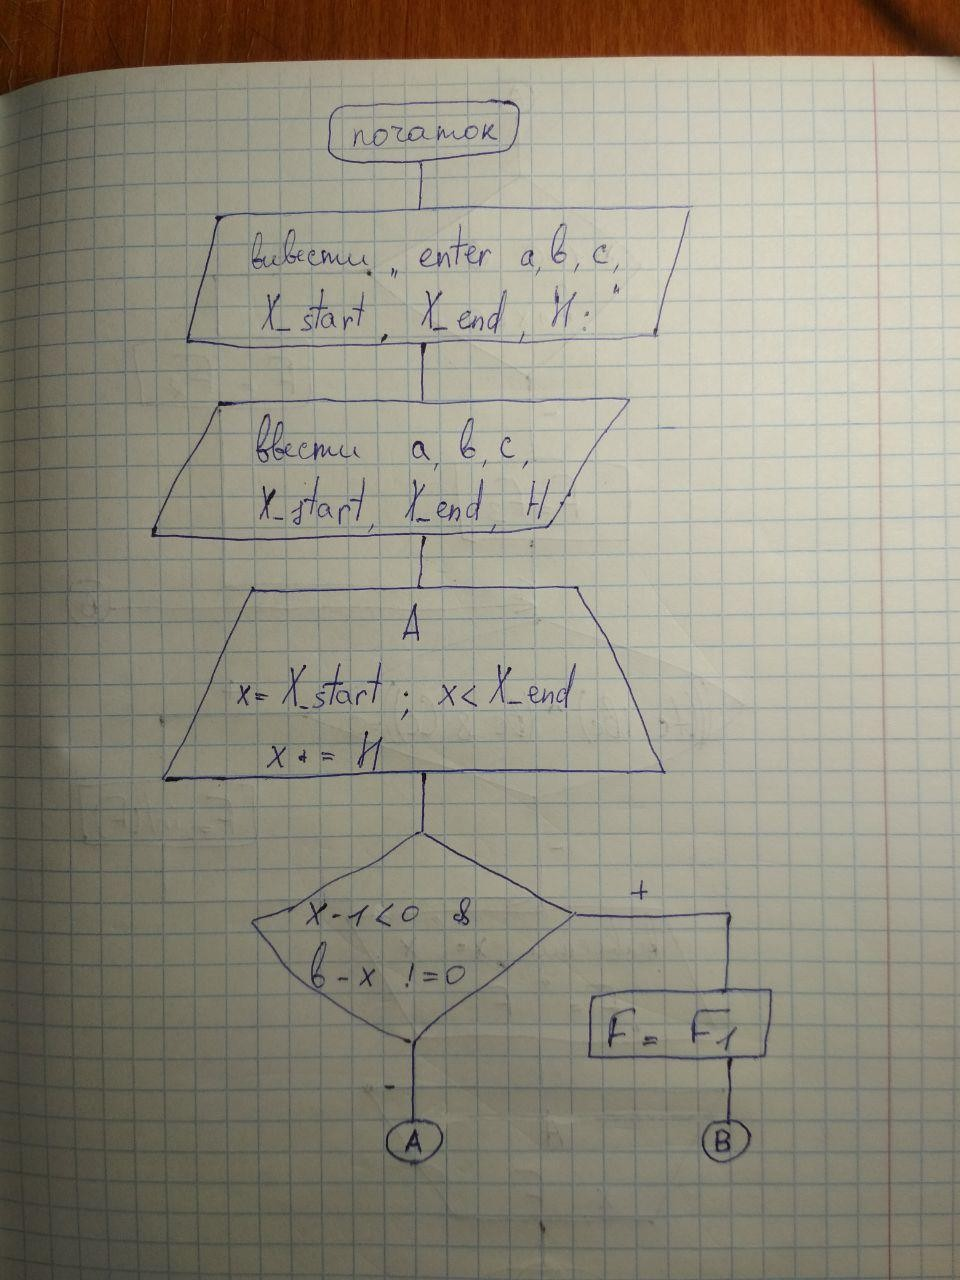 початок
вивести „ enter a, в, c,
X_start, X_end, H: "
ввести a, в, c,
X_start, X_end, H
A
x= X_start ; x< X_end
x += H
x-1<0 &
в-x !=0
+
F = F1
-
A
B